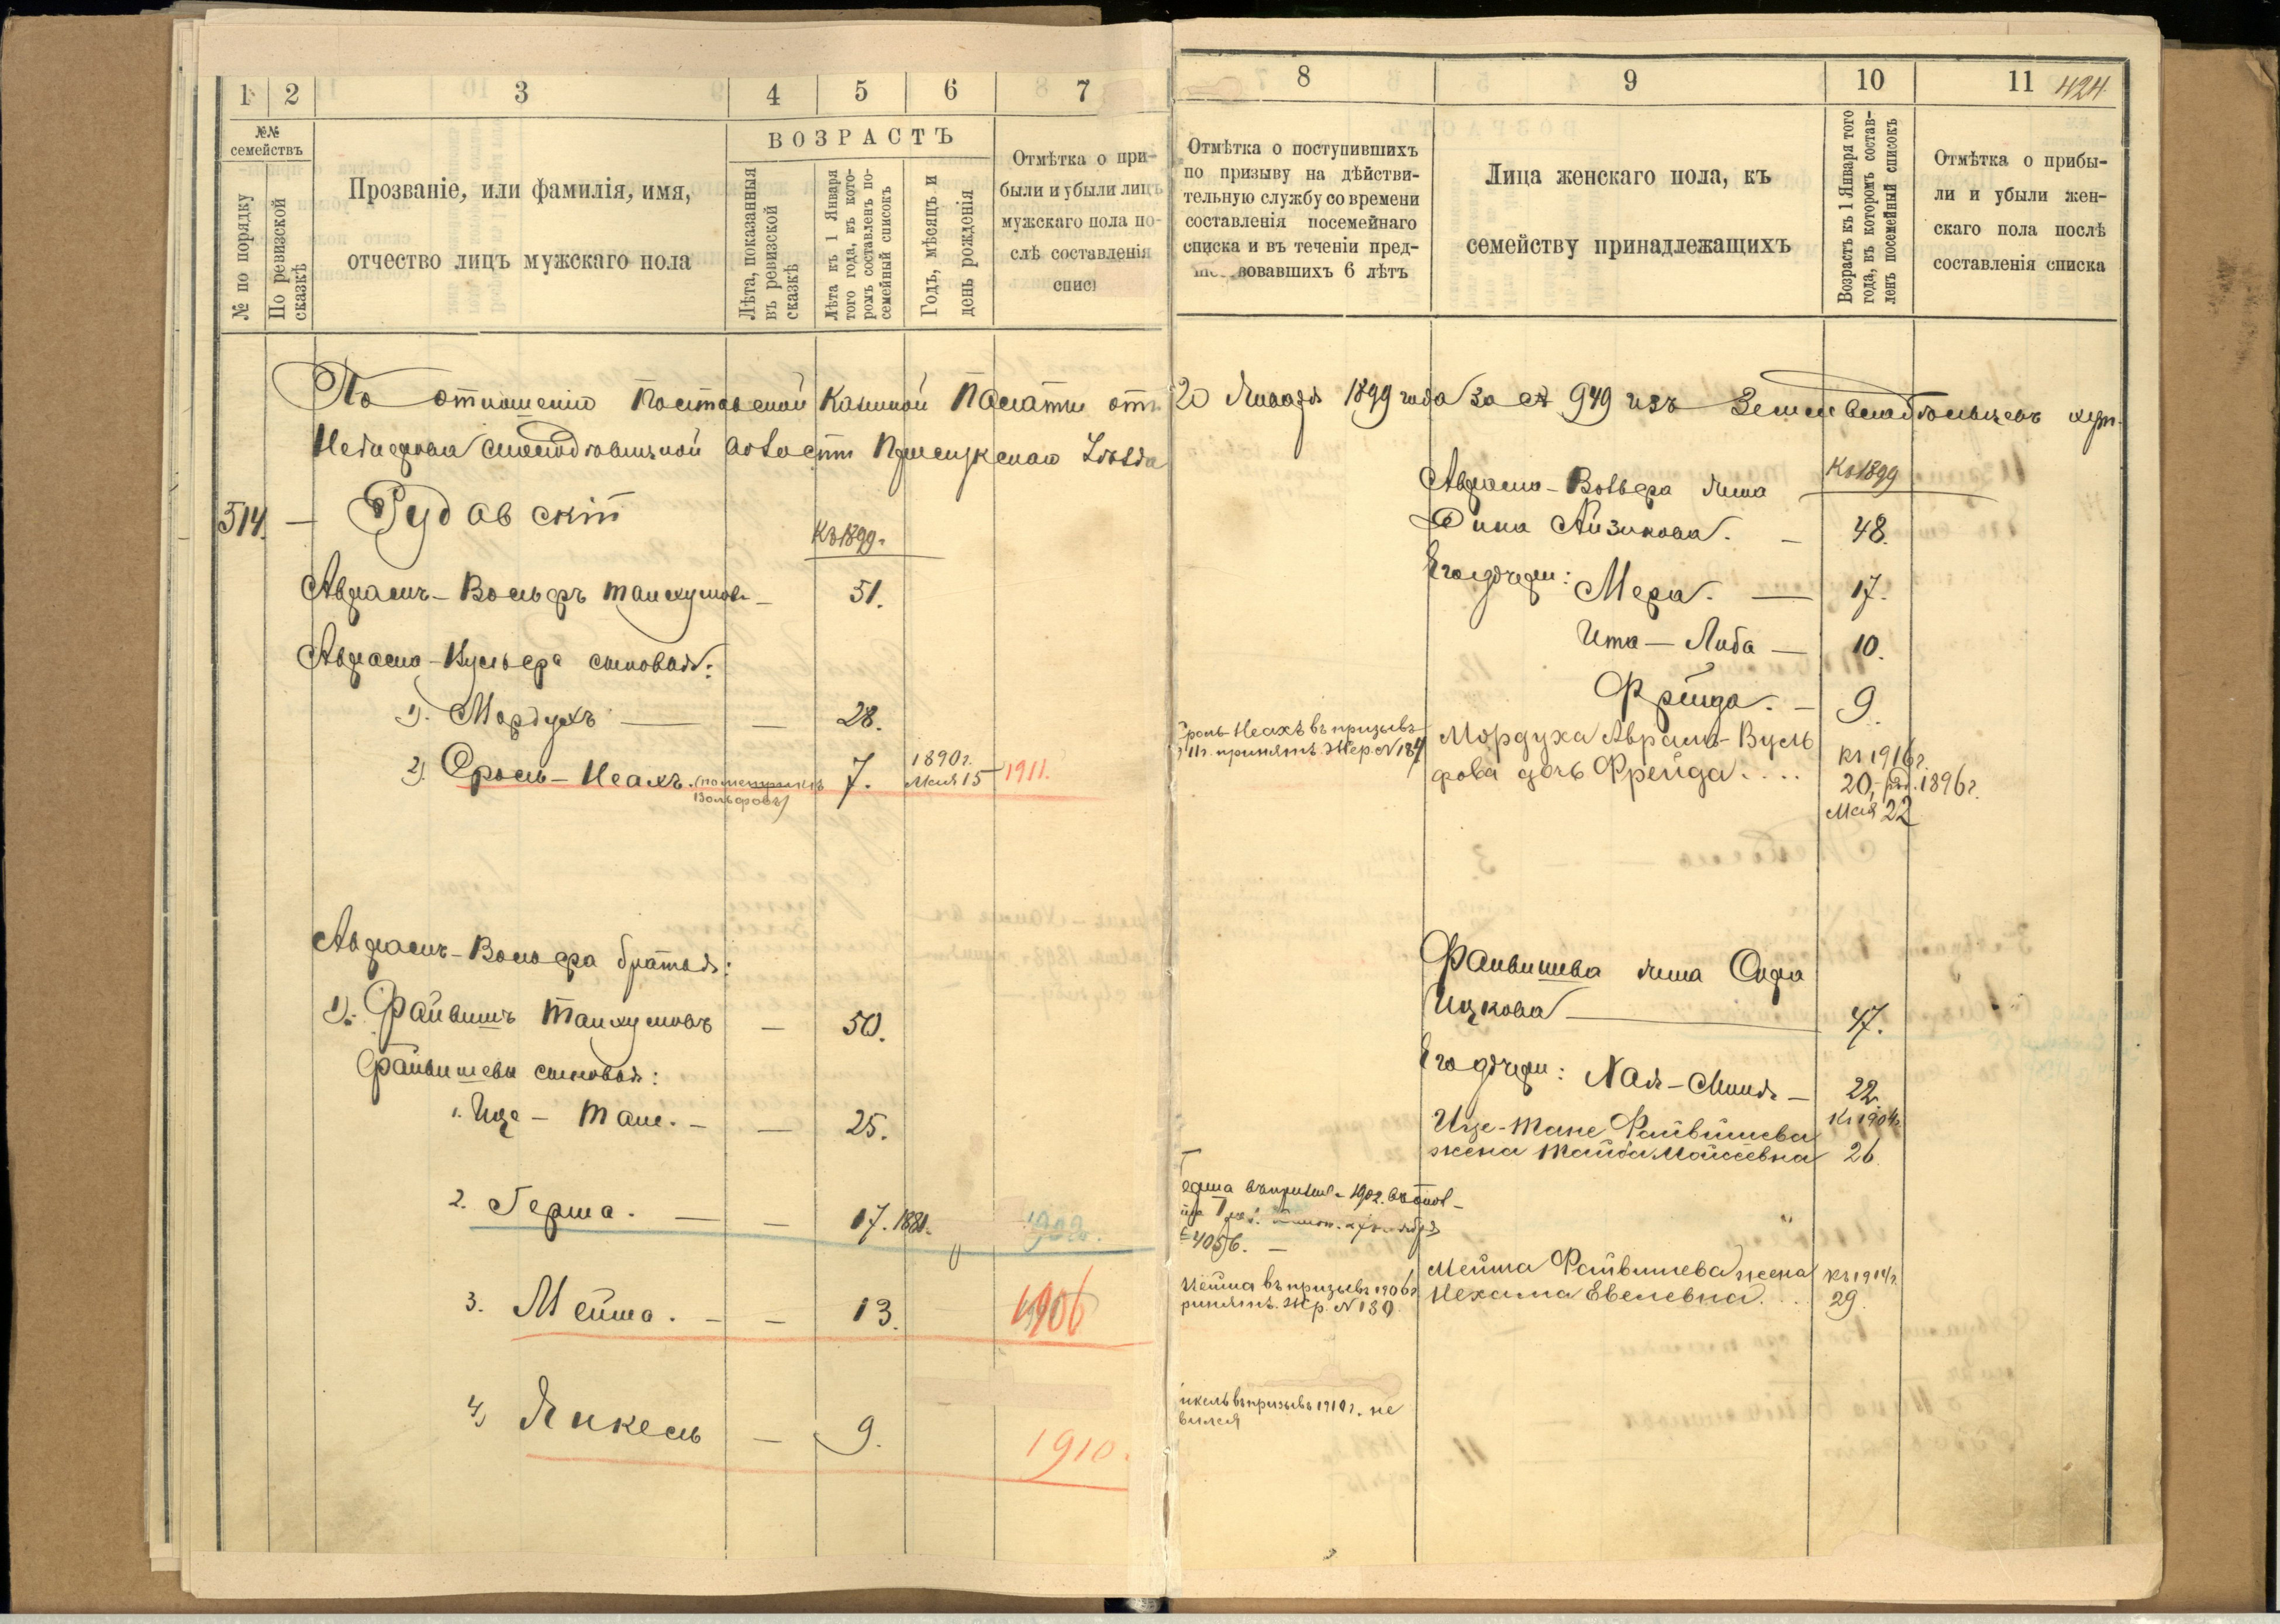 1 2 3 4 5 6 7
№№ семействъ
№ по порядку
По ревизской сказкѣ
Прозваніе, или фамилія, имя,
отчество лицъ мужскаго пола
ВОЗРАСТЪ
Лѣта, показанныя
въ ревизской
сказкѣ
Лѣта къ 1 Января
того года, въ кото-
ромъ составленъ по-
семейный списокъ
Годъ, мѣсяцъ и
день рожденія
Отмѣтка о при-
были и убыли лицъ
мужскаго пола по-
слѣ составленія
спис
8 9 10 11 424
Отмѣтка о поступившихъ
по призыву на дѣйстви-
тельную службу со времени
составленія посемейнаго
списка и въ теченіи пред-
вовавшихъ 6 лѣтъ
Лица женскаго пола, къ
семейству принадлежащихъ
Возрастъ къ 1 Января того
года, въ которомъ состав-
ленъ посемейный списокъ
Отмѣтка о прибы-
ли и убыли жен-
скаго пола послѣ
составленія списка
По отношенію Казенной Палаты отъ 20 Января 1899 года за № 949 изъ
514. — Рудавскій
Къ 1899.
Авраамъ-Вольфъ Танхумов — 51.
Сыновья:
1). Мордухъ — — 28.
2) Сроль-Неахъ. (по метрикѣ 7. 1890 г. 1911.
Вольфовъ) Мая 15
Авраамъ-Вольфа братья:
1). Файвишъ Танхумовъ — 50.
Файвишевы сыновья:
1. Ице-Тане. — — 25.
2. Герша. — — 17. 1880. 1902.
3. Мейша. — — 13. 1906
4) Янкель — 9. 1910.
Авраамо-Вольфа жена Къ 1899
Дина Айзикова. — 48.
Его дочери: Мера. — 17.
Ита-Либа — 10.
Фрейда. — 9.
Сроль-Неахъ въ призывъ
принятъ. Жер. № 184
Мордуха Авраамъ-Вуль
фова дочь Фрейда....
къ 1916 г.
20, род. 1896 г.
Мая 22
Файвишева жена Сора
Ицкова — 47.
Его дочери: Хая-Миня — 22.
Ице-Тане Файвишева Къ 1904
жена Тайба Мойсеевна 26
Герша 1902.
4056. —
Мейша въ призывъ 1906 г.
ринятъ. Жер. № 130.
Мейша Файвишева жена къ 1914 г.
Нехама Евелевна. . . 29.
нкель въ призывъ 1910 г. не
вился